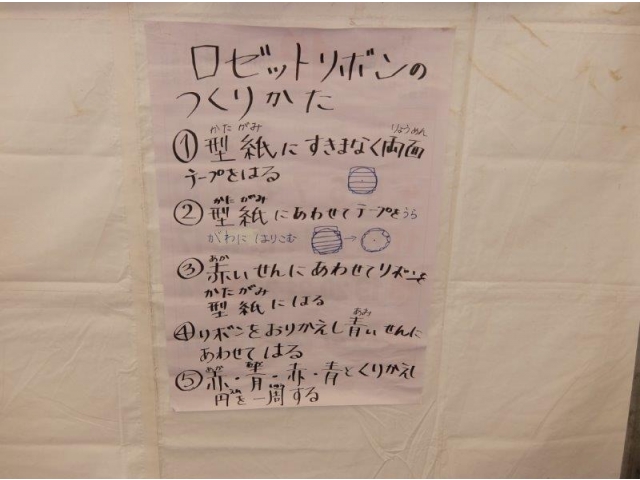 ロゼットリボンの
つくりかた
①型紙にすきまなく両面
かたがみ りょうめん
テープをはる
②型紙にあわせてテープをうら
かたがみ
がわにはりこむ
③赤いせんにあわせてリボンを
あか
かたがみ
型紙にはる
④リボンをおりかえし青いせんに
あお
あわせてはる
⑤赤・青・赤・青とくりかえし
円を一周する